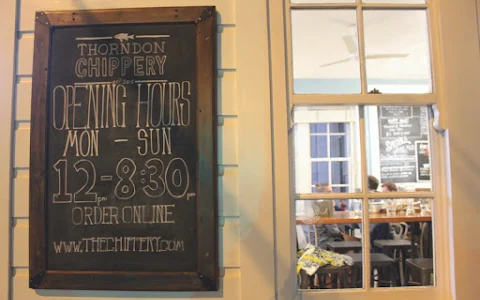 THORNDON
CHIPPERY
OPENING HOURS
MON - SUN
12pm-8:30pm
ORDER ONLINE
WWW.THECHIPPERY.COM